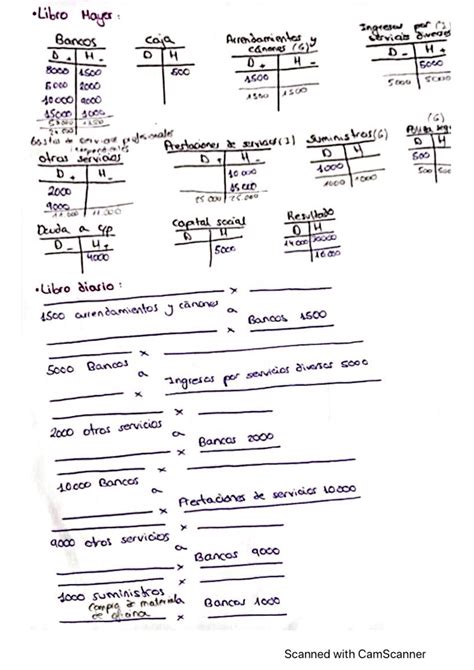 •Libro Mayor:
Bancos
D + H -
8000 1500
5000 2000
10000 9000
15000 1000
Caja
D H
500
Arrendamientos y
cánones (G)
D + H -
1500
1500 1500
Ingresos por (I)
servicios diversos
D - H +
5000
5000 5000
profesionales
otros servicios
D + H -
2000
9000
11.000 11.000
Prestaciones de servicios (I)
D H
10000
15000
25000 25000
Suministros (G)
D + H -
1000
1000 1000
(G)
D H
500
500
Deuda a c/p
D - H +
4000
Capital social
D H
5000
Resultado
D H
14000 30000
16000
•Libro diario:
x
1500 arrendamientos y cánones
a
Bancos 1500
x
5000 Bancos
a
Ingresos por servicios diversos 5000
x
x
2000 otros servicios
a
Bancos 2000
x
10000 Bancos
a
Prestaciones de servicios 10000
x
9000 otros servicios
a
Bancos 9000
x
x
1000 suministros
Compra de materiale
de oficina
a
Bancos 1000
x
Scanned with CamScanner